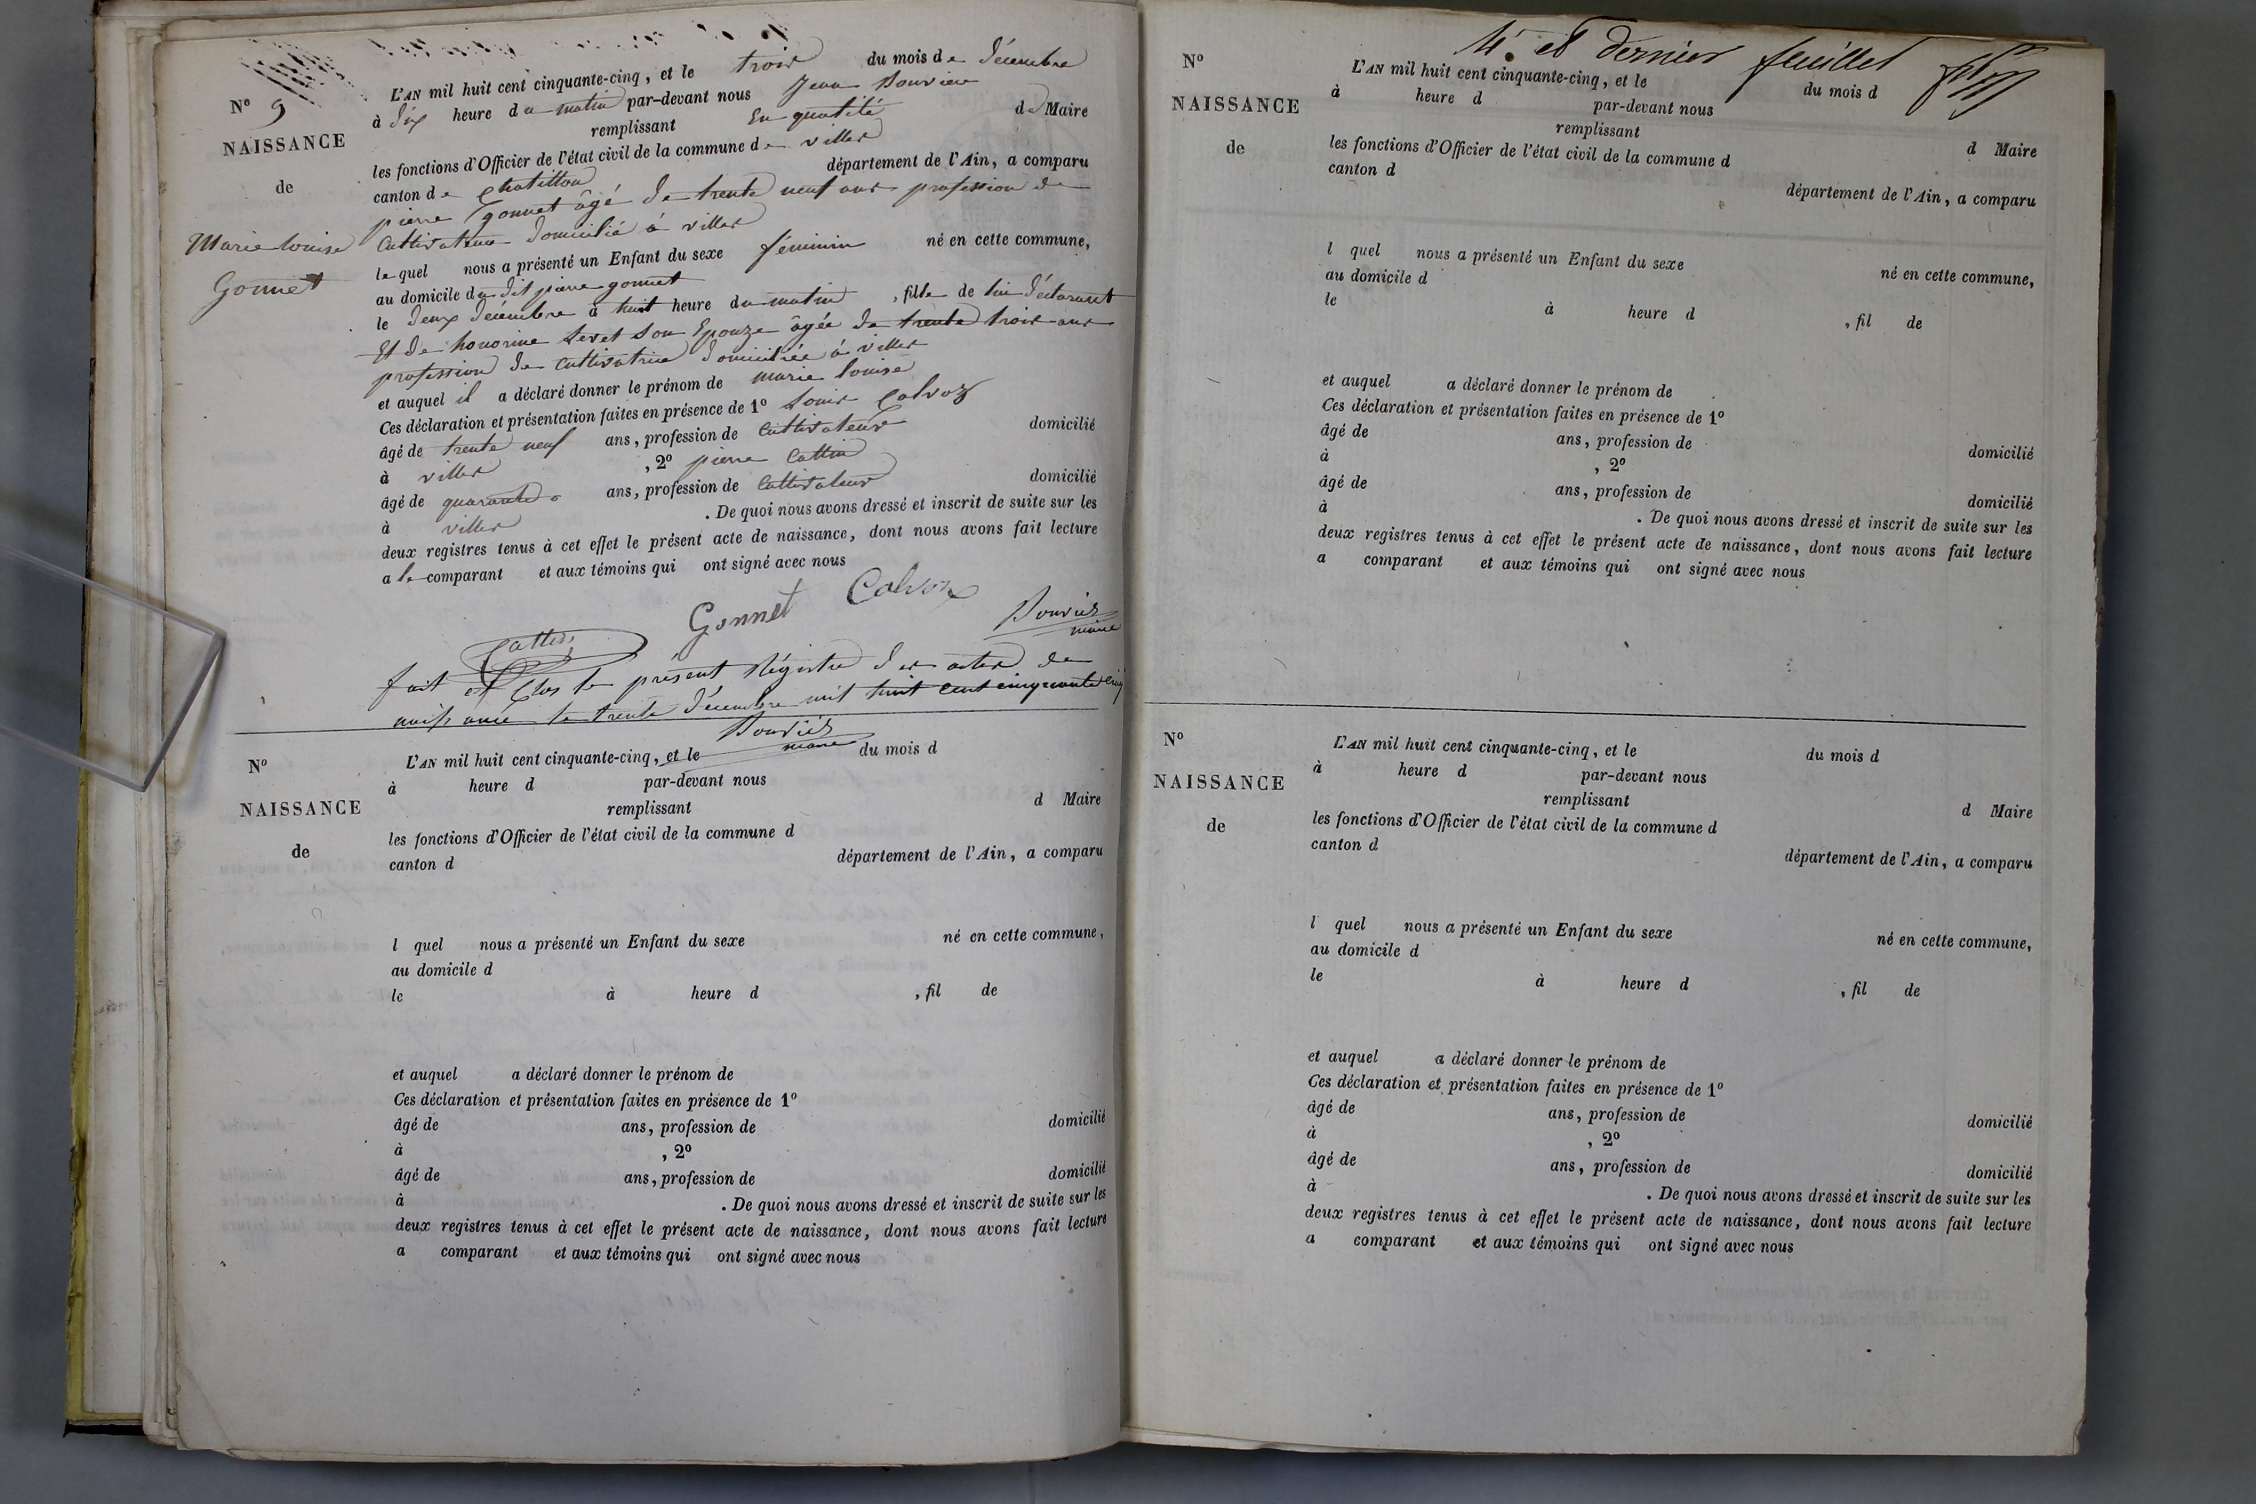 N° 9
NAISSANCE
de
Marie Louise
Gonnet
L'AN mil huit cent cinquante-cinq, et le trois du mois de décembre
à dix heure du matin par-devant nous Jean Bouvier
remplissant En qualité de Maire
les fonctions d'Officier de l'état civil de la commune de villes
canton de Chatillon département de l'Ain, a comparu
pierre gonnet âgé de trente neuf ans profession de
Cultivateur domicilié à villes
lequel nous a présenté un Enfant du sexe féminin né en cette commune,
au domicile du dit pierre gonnet
le deux décembre à huit heure du matin, fille de lui déclarant
Et de honorine Seret Son Epouze âgée de trente trois ans
profession de Cultivatrice domiciliée à villes
et auquel il a déclaré donner le prénom de marie louise
Ces déclaration et présentation faites en présence de 1° Louis Calvoz
âgé de trente neuf ans, profession de Cultivateur domicilié
à villes, 2° pierre Cattin
âgé de quarante ans, profession de Cultivateur domicilié
à villes. De quoi nous avons dressé et inscrit de suite sur les
deux registres tenus à cet effet le présent acte de naissance, dont nous avons fait lecture
a le comparant et aux témoins qui ont signé avec nous
Cattin Gonnet Calvoz Bouvier
maire
fait et Clos le présent Régistre des actes de
naissance le trente décembre mil huit cent cinquante cinq
Bouvier
maire
N°
NAISSANCE
de
L'AN mil huit cent cinquante-cinq, et le du mois d
à heure d par-devant nous
remplissant d Maire
les fonctions d'Officier de l'état civil de la commune d
canton d département de l'Ain, a comparu
l quel nous a présenté un Enfant du sexe né en cette commune,
au domicile d
le à heure d , fil de
et auquel a déclaré donner le prénom de
Ces déclaration et présentation faites en présence de 1°
âgé de ans, profession de domicilié
à , 2°
âgé de ans, profession de domicilié
à . De quoi nous avons dressé et inscrit de suite sur les
deux registres tenus à cet effet le présent acte de naissance, dont nous avons fait lecture
a comparant et aux témoins qui ont signé avec nous
4e et dernier feuillet
N°
NAISSANCE
de
L'AN mil huit cent cinquante-cinq, et le du mois d
à heure d par-devant nous
remplissant d Maire
les fonctions d'Officier de l'état civil de la commune d
canton d département de l'Ain, a comparu
l quel nous a présenté un Enfant du sexe né en cette commune,
au domicile d
le à heure d , fil de
et auquel a déclaré donner le prénom de
Ces déclaration et présentation faites en présence de 1°
âgé de ans, profession de domicilié
à , 2°
âgé de ans, profession de domicilié
à . De quoi nous avons dressé et inscrit de suite sur les
deux registres tenus à cet effet le présent acte de naissance, dont nous avons fait lecture
a comparant et aux témoins qui ont signé avec nous
N°
NAISSANCE
de
L'AN mil huit cent cinquante-cinq, et le du mois d
à heure d par-devant nous
remplissant d Maire
les fonctions d'Officier de l'état civil de la commune d
canton d département de l'Ain, a comparu
l quel nous a présenté un Enfant du sexe né en cette commune,
au domicile d
le à heure d , fil de
et auquel a déclaré donner le prénom de
Ces déclaration et présentation faites en présence de 1°
âgé de ans, profession de domicilié
à , 2°
âgé de ans, profession de domicilié
à . De quoi nous avons dressé et inscrit de suite sur les
deux registres tenus à cet effet le présent acte de naissance, dont nous avons fait lecture
a comparant et aux témoins qui ont signé avec nous